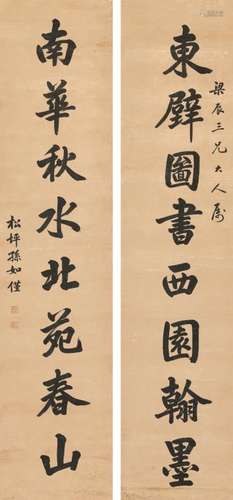 東壁圖書西園翰墨
梁辰三兄大人属
南華秋水北苑春山
松坪孫如僅